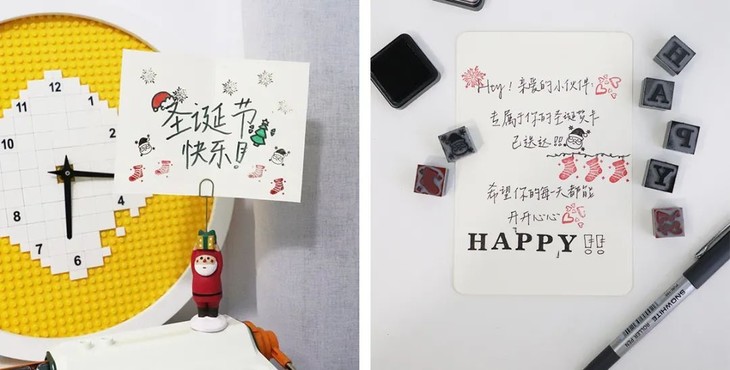 12
11
10
9
8
7
6
5
圣诞节
快乐！
Hey！亲爱的小伙伴：
专属于你的圣诞贺卡
已送达!!!
希望你的每一天都能
开开心心
HAPPY!!
H
A
P
Y
SNOWHITE ROLLER PEN